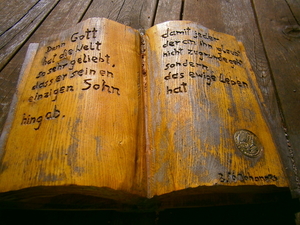 Denn Gott
hat die Welt
so sehr geliebt,
dass er seinen
einzigen Sohn
hingab.
damit jeder
der an ihn glaubt
nicht zugrunde geht
sondern
das ewige Leben
hat
3,16 Johannes